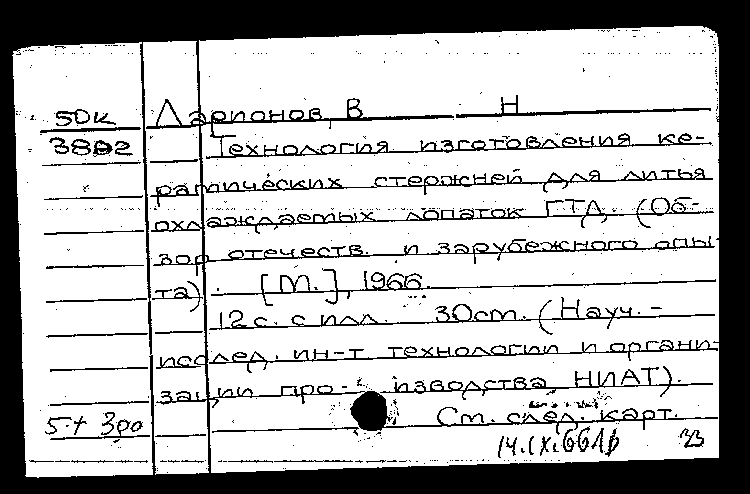 50к Ларионов, В Н
3882 Технология изготовления ке-
рамических стержней для литья
охлаждаемых лопаток ГТД. (Об-
зор отечеств. и зарубежного опы-
та). [М.], 1966.
12 с. с илл. 30см. (Науч.-
исслед. ин-т технологии и органи-
зации про-изводства, НИАТ).
5+ См. след. карт.
33